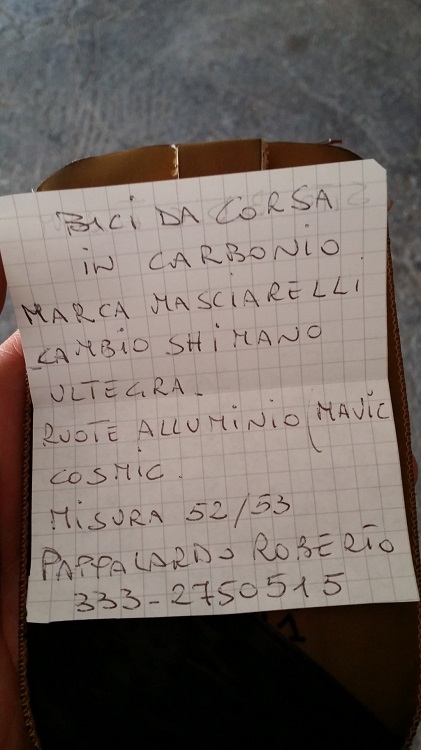 BICI DA CORSA
IN CARBONIO
MARCA MASCIARELLI
CAMBIO SHIMANO
ULTEGRA.
RUOTE ALLUMINIO (MAVIC
COSMIC.
MISURA 52/53
PAPPALARDO ROBERTO
333-2750515